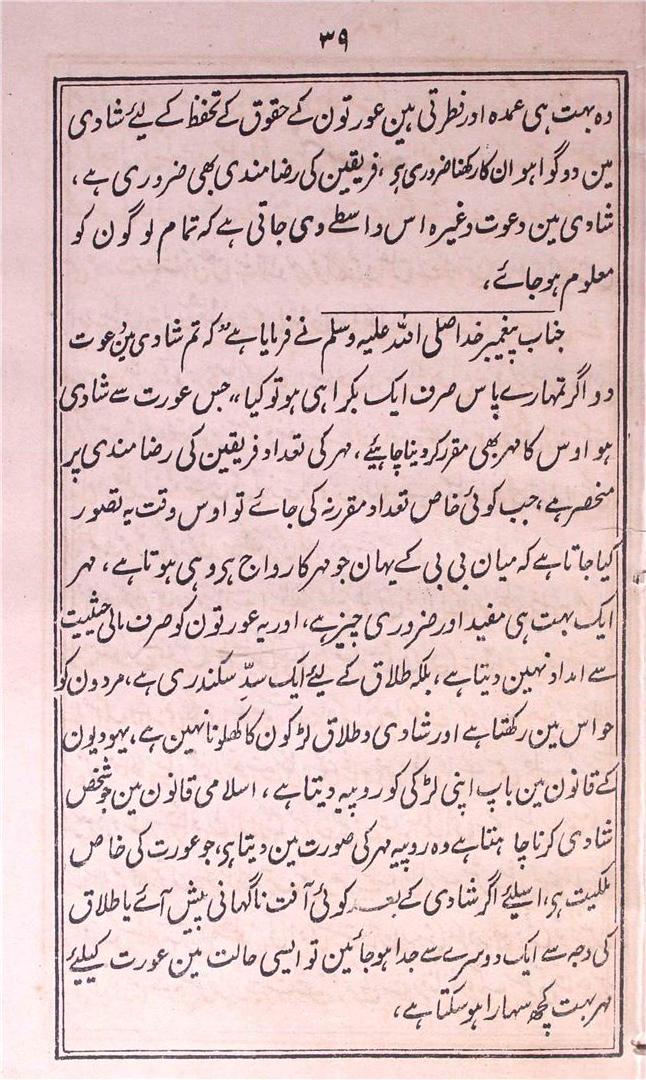 ۳۹
وہ بہت ہی عمدہ اور نطرتی ہین عورتون کے حقوق کے تحفظ کے لیئے شادی
مین دو گواہو ان کا رکھنا ضروری ہی، فریقین کی رضا مندی بھی ضروری ہے،
شادی مین دعوت وغیرہ اس واسطے دی جاتی ہے کہ تمام لوگون کو
معلوم ہو جائے،
جناب پیغمبر خدا صلی اللہ علیہ وسلم نے فرمایا ہے ”کہ تم شادی مین دعوت
دو اگر تمہارے پاس صرف ایک بکرا ہی ہو تو کیا،، جس عورت سے شادی
ہو اوس کا مہر بھی مقرر کر دینا چاہئیے، مہر کی تعداد فریقین کی رضا مندی پر
منحصر ہے، جب کوئی خاص تعداد مقرر نہ کی جائے تو اوس وقت یہ تصور
کیا جاتا ہے کہ میان بی بی کے یہان جو مہر کا رواج ہو وہی ہوتا ہے، مہر
ایک بہت ہی مفید اور ضروری چیز ہے، اور یہ عورتون کو صرف مالی حیثیت
سے امداد نہین دیتا ہے، بلکہ طلاق کے لیئے ایک سدِّ سکندری ہے، مردون کو
حواس مین رکھتا ہے اور شادی و طلاق لڑکون کا کھلونا نہین ہے، یہودیون
کے قانون مین باپ اپنی لڑکی کو روپیہ دیتا ہے، اسلامی قانون مین جو شخص
شادی کرنا چاہتا ہے وہ روپیہ مہر کی صورت مین دیتا ہی، جو عورت کی خاص
ملکیت ہی، اسلیئے اگر شادی کے بعد کوئی آفت ناگہانی پیش آئے یا طلاق
کی وجہ سے ایک دوسرے سے جدا ہو جائین تو ایسی حالت مین عورت کیلیئے
مہر بہت کچھ سہارا ہو سکتا ہے،